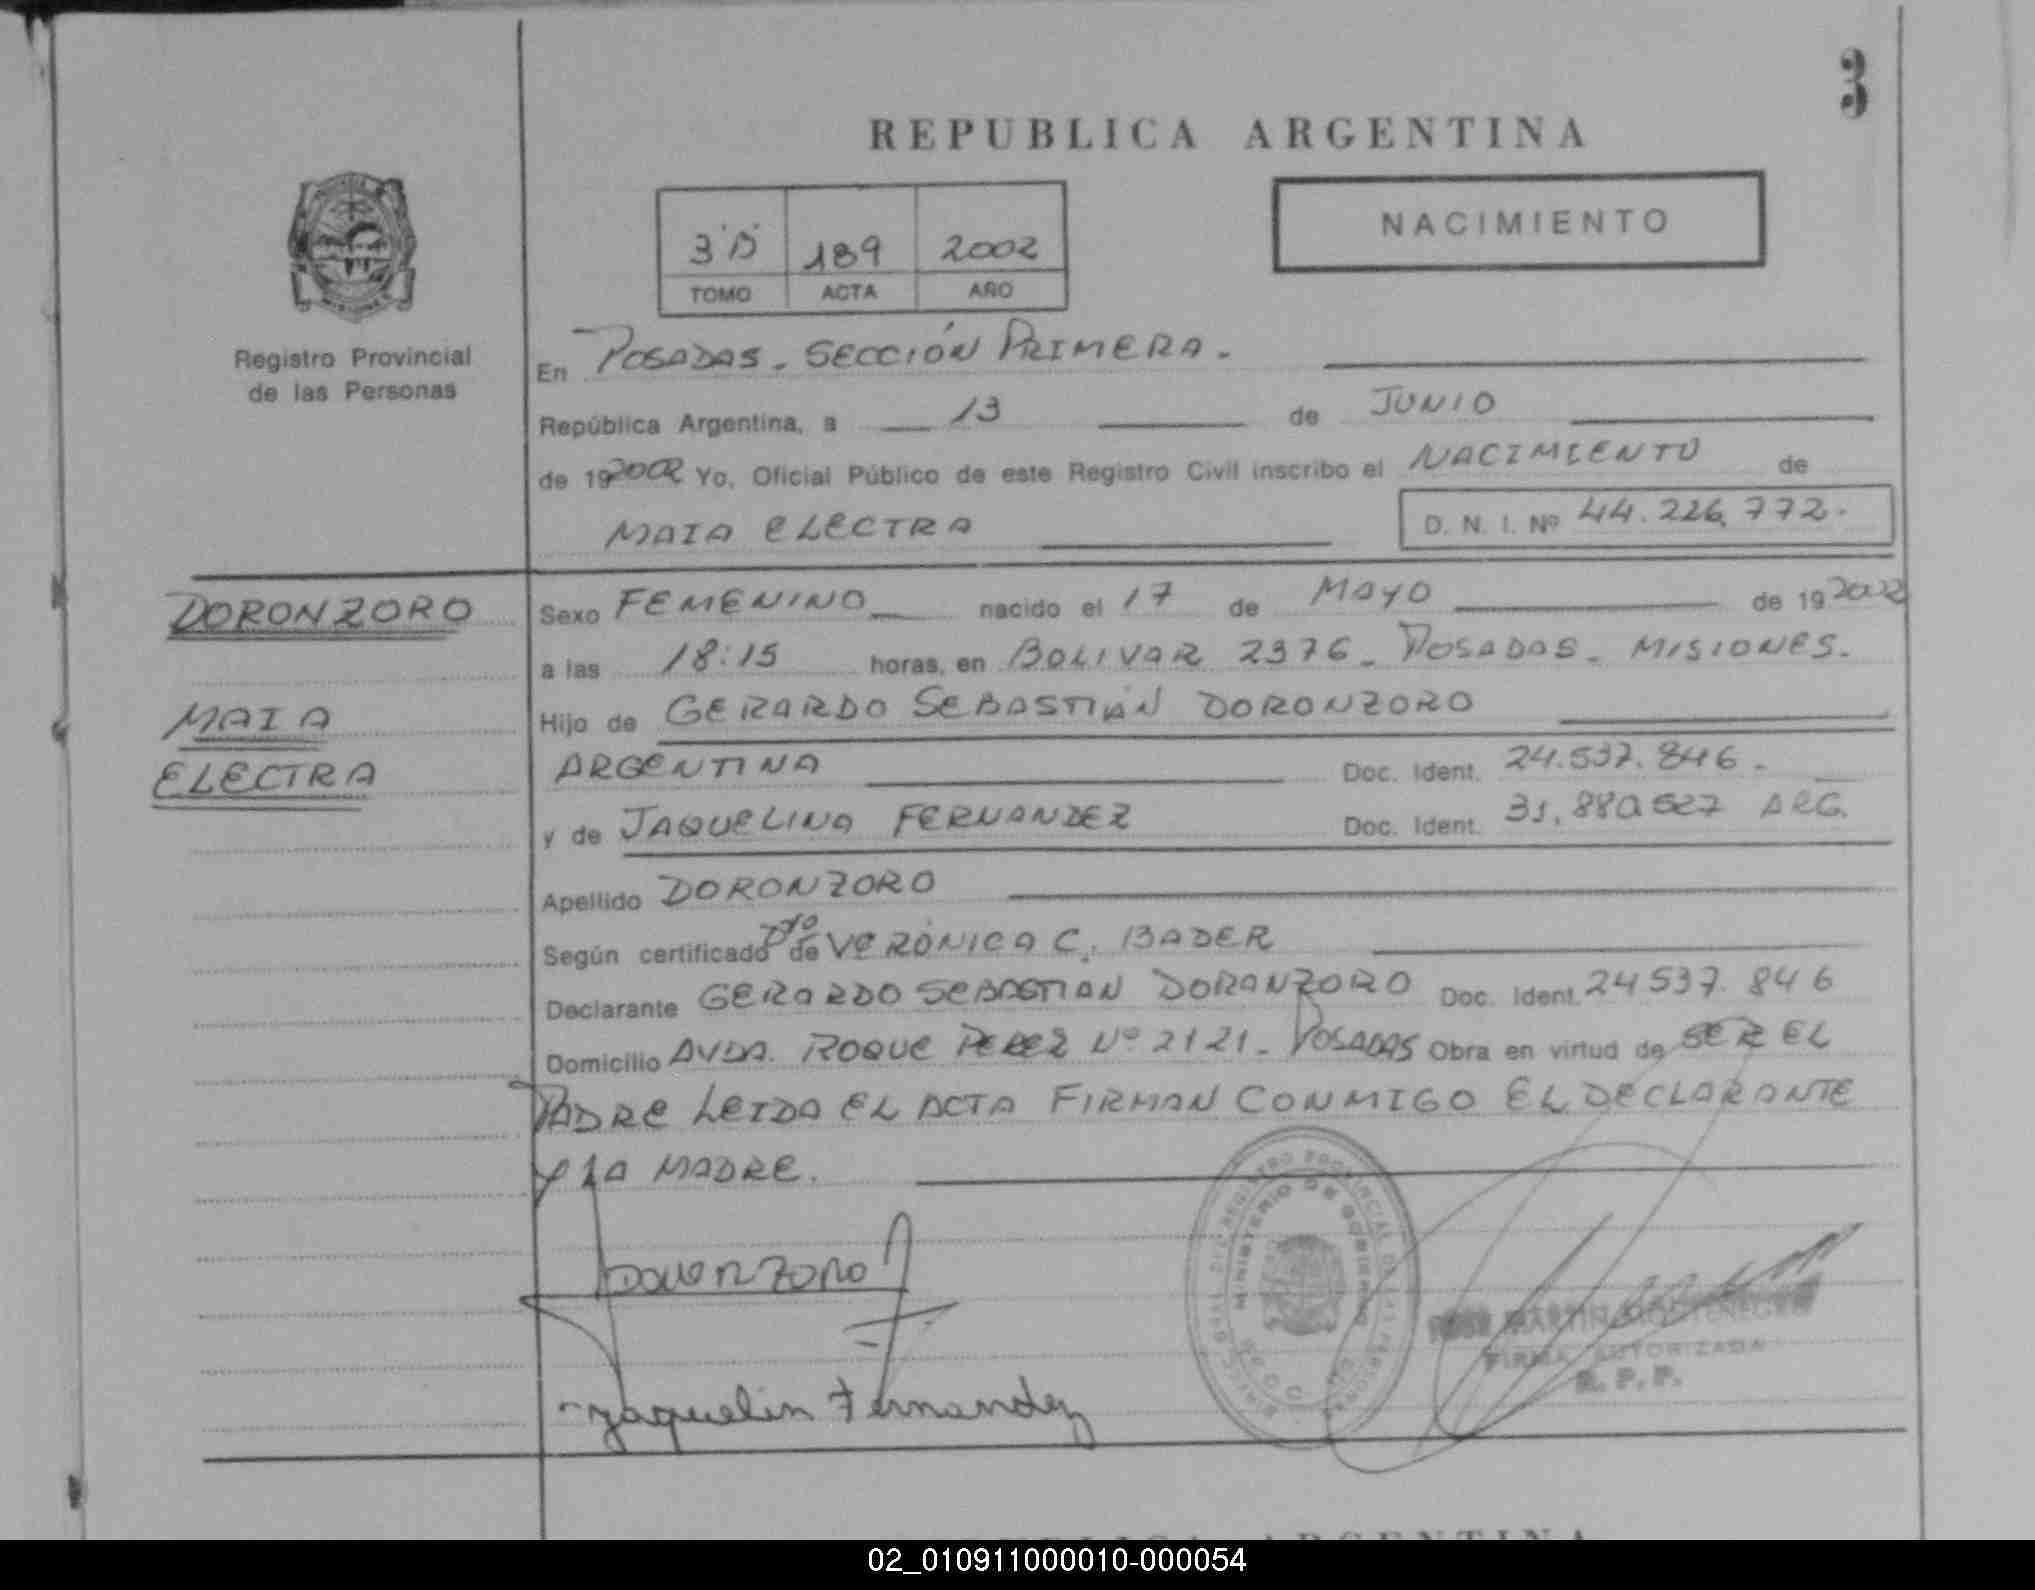 3
REPUBLICA ARGENTINA
NACIMIENTO
3'D' 189 2002
TOMO ACTA AÑO
Registro Provincial
de las Personas
En POSADAS. SECCIÓN PRIMERA.
República Argentina, a 13 de JUNIO
de 192002 Yo, Oficial Público de este Registro Civil inscribo el NACIMIENTO de
MAIA ELECTRA D. N. I. Nº 44.226.772.
DORONZORO
MAIA
ELECTRA
Sexo FEMENINO nacido el 17 de MAYO de 19 2002
a las 18:15 horas, en BOLIVAR 2376. POSADAS. MISIONES.
Hijo de GERARDO SEBASTIÁN DORONZORO
ARGENTINA Doc. Ident. 24.537.846.
y de JAQUELINA FERNANDEZ Doc. Ident. 31.880.527 ARG.
Apellido DORONZORO
Según certificado de VERÓNICA C. BADER
Declarante GERARDO SEBASTIAN DORANZORO Doc. Ident. 24537.846
Domicilio AVDA. ROQUE PEREZ Nº 2121. POSADAS Obra en virtud de SER EL
PADRE LEIDA EL ACTA FIRMAN CONMIGO EL DECLARANTE
Y LA MADRE.
MINISTERIO DE GOBIERNO
Doronzoro
Jaquelin Fernandez
MARTIN MONTENEGRO
FIRMA AUTORIZADA
R. P. P.
ARGENTINA
02_010911000010-000054